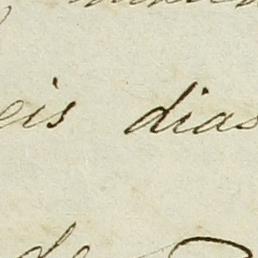 eis dias
de